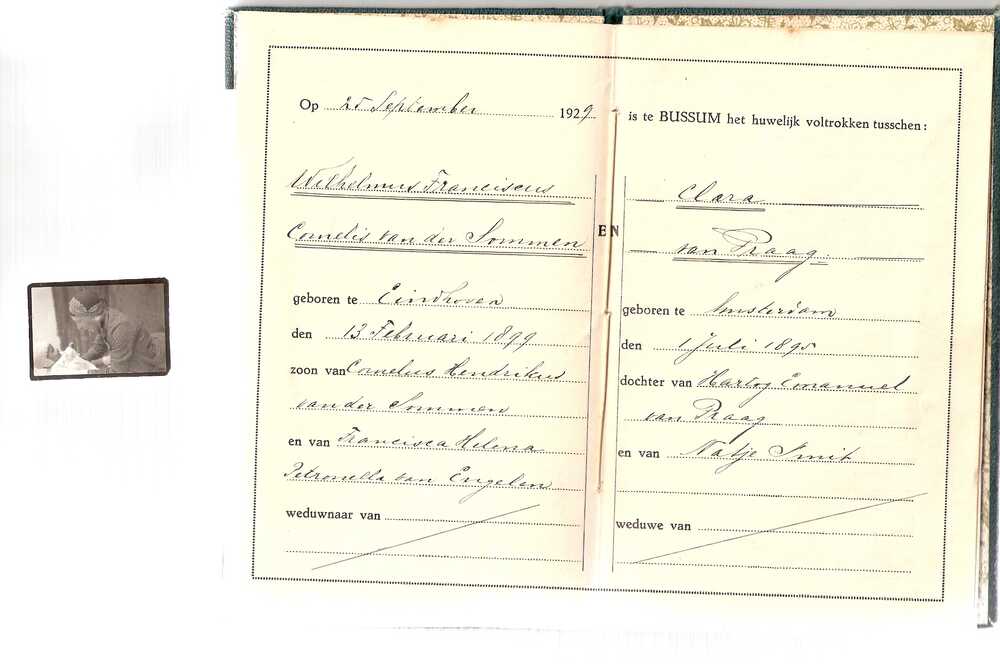 Op 25 September 1929 is te BUSSUM het huwelijk voltrokken tusschen:
Wilhelmus Franciscus
Cornelis van der Sommen
geboren te Eindhoven
den 13 Februari 1899
zoon van Cornelius Hendrikus
van der Sommen
en van Francisca Helena
Petronella van Engelen
weduwnaar van
EN
Clara
van Praag.
geboren te Amsterdam
den 1 Juli 1895
dochter van Hartog Emanuel
van Praag
en van Natje Smit
weduwe van